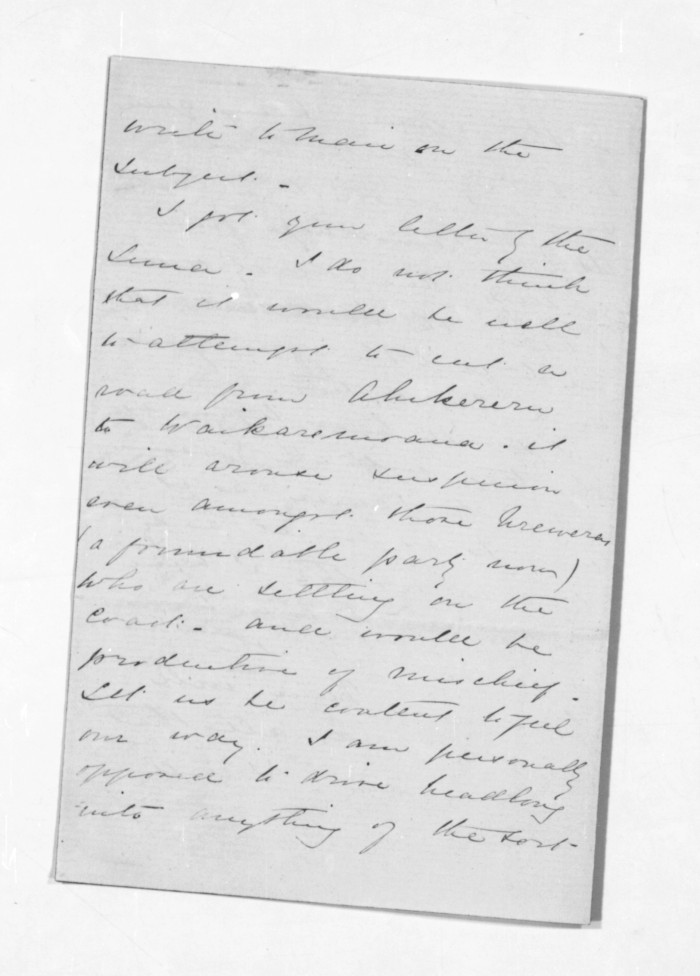 write to Mair on the
subject.
I got your letter by the
Luna. I do not think
that it would be well
to attempt to cut a
road from Ahikereru
to Waikaremoana. it
will arouse suspicion
even amongst those Ureweras
(a formidable party now)
who are settling on the
coast. and would be
productive of mischief.
Let us be content to feel
our way. I am personally
opposed to drive headlong
into anything of the sort.